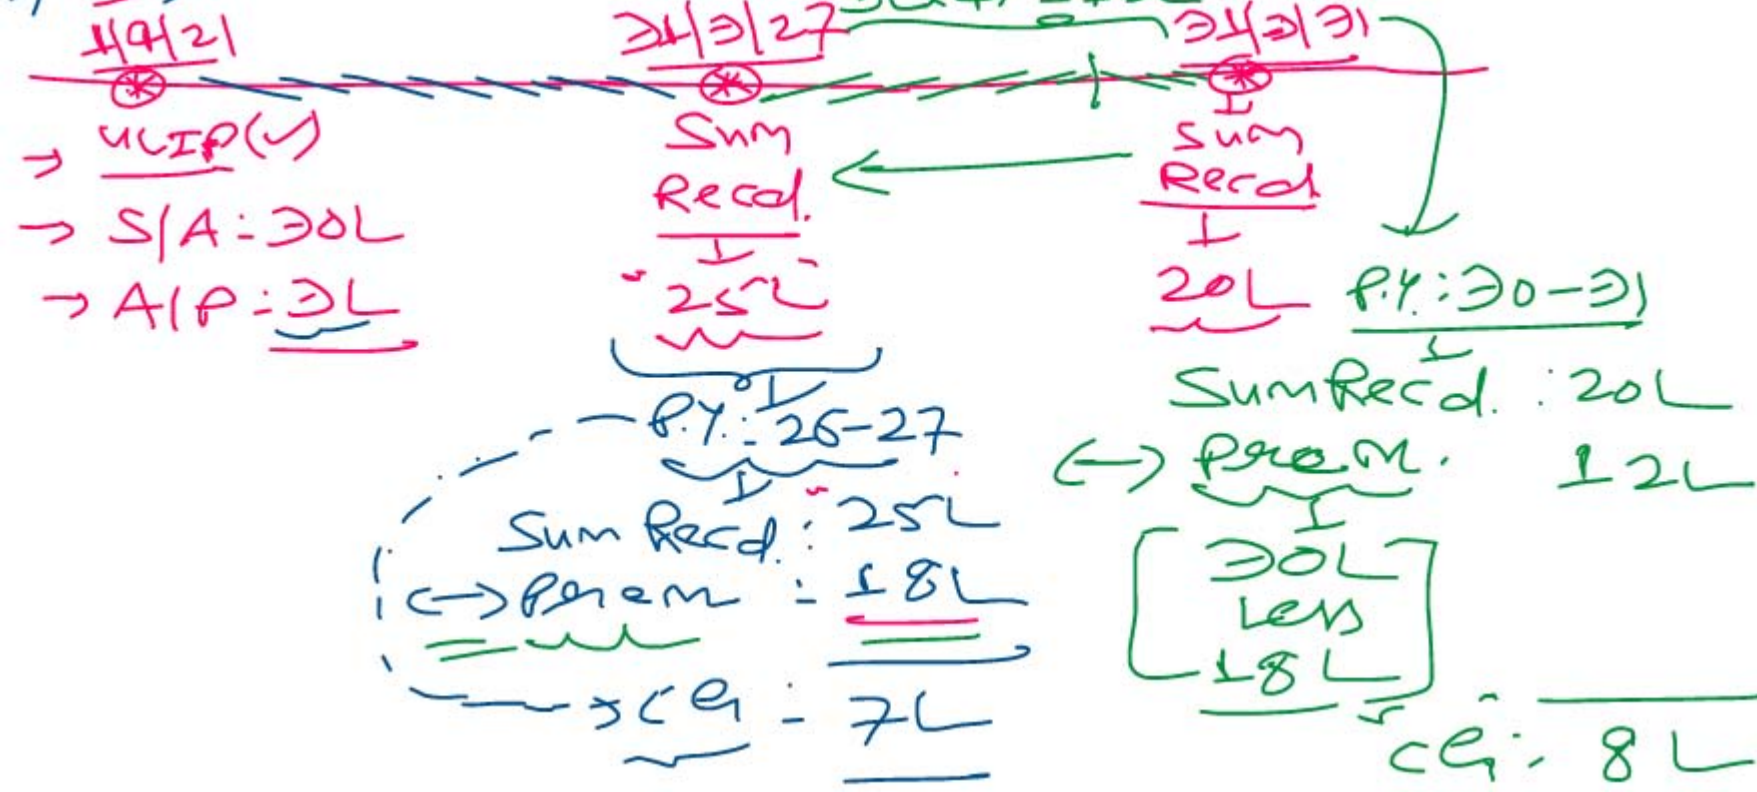 1/4/21
31/3/27
31/3/31
→ ULIP(✓)
→ S/A : 30L
→ A/P : 3L
Sum
Recd.
"25L"
Sum
Recd
20L
P.Y. : 26-27
Sum Recd. : 25L
(-) Prem : 18L
CG : 7L
P.Y. : 30-31
Sum Recd. : 20L
(-) Prem. 12L
[30L
Less
18L]
CG : 8L